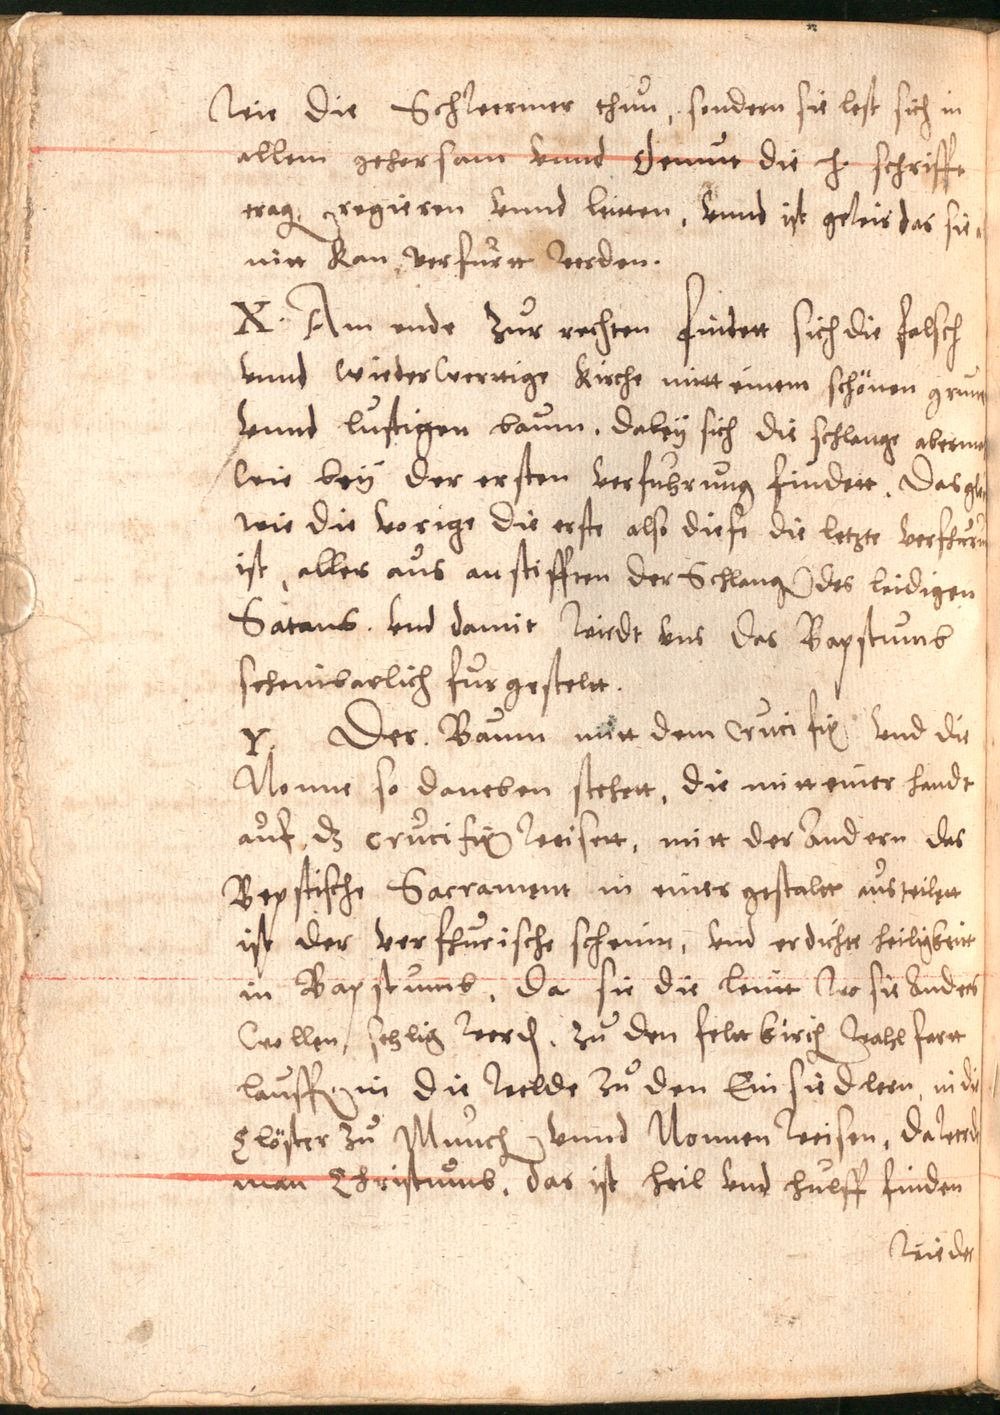 wie die Schwermer thun, sondern sie lest sich in
allem gehorsam vnnd demut die h. schrifft
trag. regieren vnnd leitten, vnnd ist gewis das sie
nitt kan verfurtt werden.
X. Am ende zur rechten findett sich die falsch
vnnd wiederwertige kirche mitt einem schönen grun
vnnd lustigen baum, dabeÿ sich die schlange aberma
wie beÿ der ersten verfuhrung findett. Das gle
wie die vorige die erste also diese die letzte verfhuru
ist, alles aus anstifften der Schlang des leidigen
Satans. vnd damit wirdt vns das Bapstumb
scheinbarlich furgestelt.
Y. Der Baum mitt dem Crucifix vnd die
Nonne so daneben stehett, die mitt einer handt
auf dz Crucifix weisett, mitt der Andern das
Bepstische Sacrament in einer gestaltt austeilett
ist der verfhurische schein, vnd erdichtt heiligkeitt
in Bapstumb, Da sie die leutt wo sie Anders
wollen sehlig werd. zu den feltkirch wahlfartt
lauff in die welde zu den Einsiedlern, in die
Clöster zu Munch vnnd Nonnen weisen, da werde
man Christumb, das ist heil vnd hulff finden
wieder